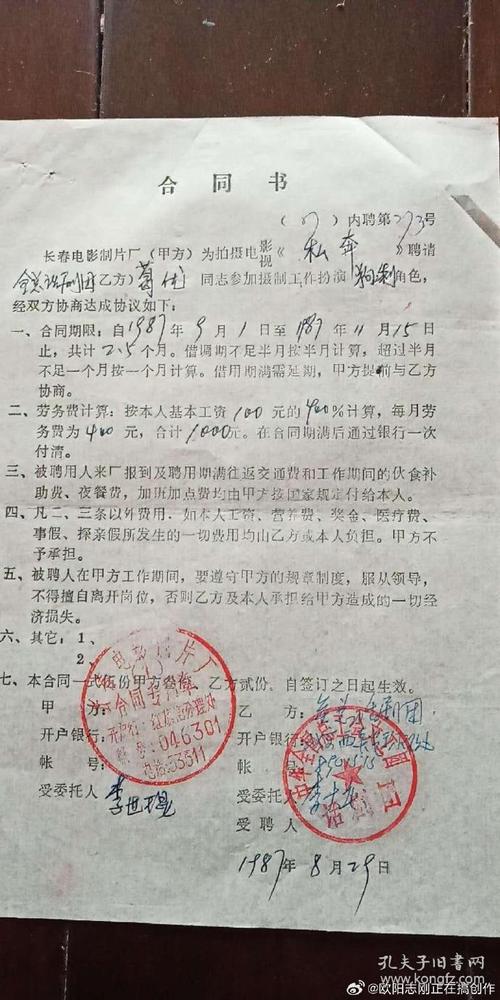 合同书
(87)内聘第273号
长春电影制片厂(甲方)为拍摄电影视《私奔》聘请
全总话剧团乙方)葛优 同志参加摄制工作扮演 角色,
经双方协商达成协议如下:
一、合同期限:自1987年9月1日至1987年11月15日
止,共计2.5个月。借调期不足半月按半月计算,超过半月
不足一个月按一个月计算。借用期满需延期,甲方提前与乙方
协商。
二、劳务费计算:按本人基本工资100元的400%计算,每月劳
务费为400元,合计1000元。在合同期满后通过银行一次
付清。
三、被聘用人来厂报到及聘用期满往返交通费和工作期间的伙食补
助费、夜餐费,加班加点费均由甲方按国家规定付给本人。
四、凡二、三条以外费用,如本人工资、营养费、奖金、医疗费、
事假、探亲假所发生的一切费用均由乙方或本人负担。甲方不
予承担。
五、被聘人在甲方工作期间,要遵守甲方的规章制度,服从领导,
不得擅自离开岗位,否则乙方及本人承担给甲方造成的一切经
济损失。
六、其它:1、
2、
七、本合同一式 份甲方叁份,乙方贰份,自签订之日起生效。
甲方:
开户银行:
帐号:
受委托人
乙方:全总话剧团
开户银行:
帐号:
受委托人
受聘人
1987年8月29日
电影制片厂
合同专用章
开户行:
帐号:046301
电话:53311
话剧团
孔夫子旧书网
www.kongfz.com
@欧阳志刚正在搞创作